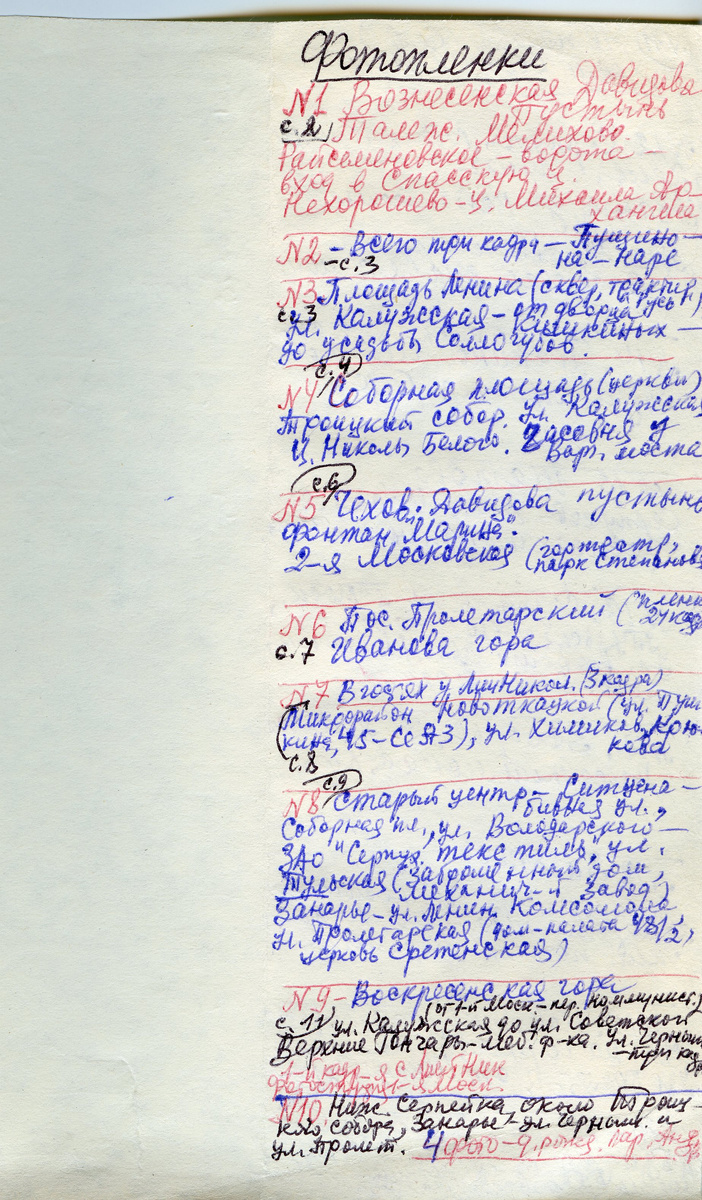 Фотопленки
N1 Вознесенская Давидова
Пустынь
с.2 Талеж. Мелихово.
Райсеменовское – ворота –
вход в Спасскую ц.
Нехорошево – ц. Михаила Ар-
хангела
N2 – Всего три кадра – Пущино-
– с.3 на-Наре
N3 Площадь Ленина (сквер,
с.3 ул. Калужская – от дворца
Кишкиных –
до усадьбы Соллогубов.
с.4
N4 Соборная площадь (церковь)
Троицкий собор. Ул. Калужская
Ц. Николы Белого. Часовня у
Вар. моста
с.6
N5 Чехов. Давидова пустынь
фонтан "Марина".
2-я Московская (
парк Степанова
N6 Пос. Пролетарский (пленка
24 кад
с.7 Иванова гора
N7 В гостях у (3 кадра)
Микрорайон Новоткацкой (ул. Пуш-
кина, 45 – ), ул. Химиков, Крю-
кова
с.8
с.9
N8 Старый центр – Ситцена-
бивная ул.,
Соборная пл., ул. Володарского –
ЗАО "Серпух. текстиль", ул.
Тульская (Заброшенный дом,
Механич-й завод)
Занарье – ул. Ленин. Комсомола
ул. Пролетарская (дом-палата
церковь Сретенская)
N9 – Воскресенская гора
(от 1-й Моск – пер. Коммунист.)
с.11 ул. Калужская до ул. Советской
Верхние Гончары – Меб. ф-ка. Ул. Черныш
– три кад
1-й кадр – я с
1-я Моск.
N10 Ниж. Серпейка, около Троиц-
кого собора, Занарье – ул. Черныш. и
ул. Пролет. 4 фото – д. рожд.